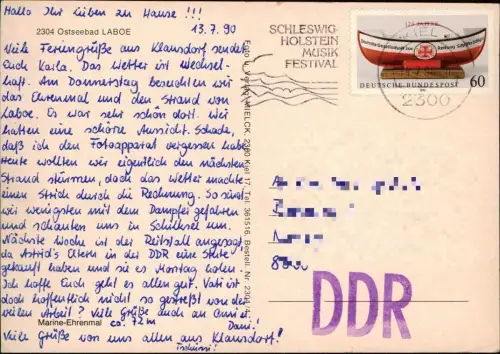 Hallo Ihr Lieben zu Hause !!!
2304 Ostseebad LABOE
13.7.90
Viele Feriengrüße aus Klausdorf sendet
Euch Karla. Das Wetter ist Wechsel-
haft. Am Donnerstag besuchten wir
das Ehrenmal und den Strand von
Laboe. Es war sehr schön dort. Wir
hatten eine schöne Aussicht. Schade,
daß ich den Fotoapparat vergessen habe
Heute wollten wir eigentlich den nächsten
Strand stürmen, doch das Wetter machte
einen Strich durch die Rechnung. So sind
wir wenigsten mit dem Dampfer gefahren
und schauten uns in Schilksee um.
Nächste Woche ist der Reitstall angesagt,
da Astrid's Eltern in der DDR eine Stute
gekauft haben und sie es Montag holen.
Ich hoffe Euch geht es allen gut. Vati ist
doch hoffentlich nicht so gestreßt von der
vielen Arbeit? Viele Grüße auch an
Dani!
Marine-Ehrenmal ca. 72 m
Viele Grüße von uns allen aus Klausdorf!
Tschüssi!
Foto u. Verlag MIELCK, 2300 Kiel 17, Tel. 361516, Bestell. Nr. 2304
SCHLESWIG-
HOLSTEIN
MUSIK
FESTIVAL
KIEL
2300
125 JAHRE
Deutsche Gesellschaft zur Rettung Schiffbrüchiger
DEUTSCHE BUNDESPOST 60
DDR